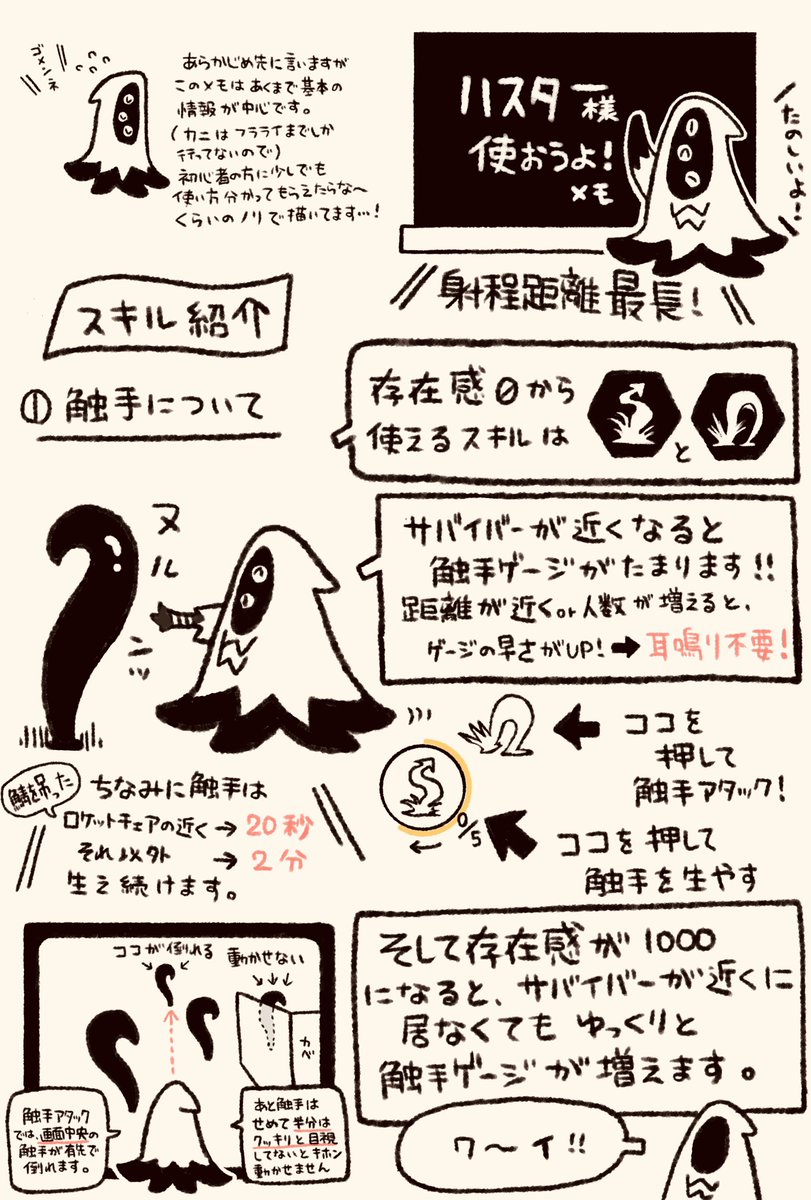 ゴメンネ
あらかじめ先に言いますが
このメモはあくまで基本の
情報が中心です。
(カニはフラライまでしか
行ってないので)
初心者の方に少しでも
使い方分かってもらえたらな〜
くらいのノリで描いてます…!
ハスター様
使おうよ!
メモ
たのしいよ!
射程距離最長!
スキル紹介
①触手について
存在感0から
使えるスキルは
と
サバイバーが近くなると
触手ゲージがたまります!!
距離が近くor人数が増えると、
ゲージの早さがUP!➡耳鳴り不要!
ヌル
ンッ
ココを
押して
触手アタック!
0/5
ココを押して
触手を生やす
ちなみに触手は
ロケットチェアの近く→20秒
それ以外→2分
生え続けます。
ココが倒れる
動かせない
カベ
触手アタック
では、画面中央の
触手が優先で
倒れます。
あと触手は
せめて半分は
クッキリと目視
してないとキホン
動かせません
そして存在感が1000
になると、サバイバーが近くに
居なくてもゆっくりと
触手ゲージが増えます。
ワ〜イ!!